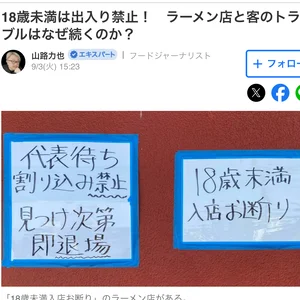 18歳未満は出入り禁止！　ラーメン店と客のトラ
ブルはなぜ続くのか？
山路力也
エキスパート
フードジャーナリスト
9/3(火) 15:23
フォロー
代表待ち
割り込み禁止
見つけ次第
即退場
18歳未満
入店お断り
「18歳未満入店お断り」のラーメン店がある。